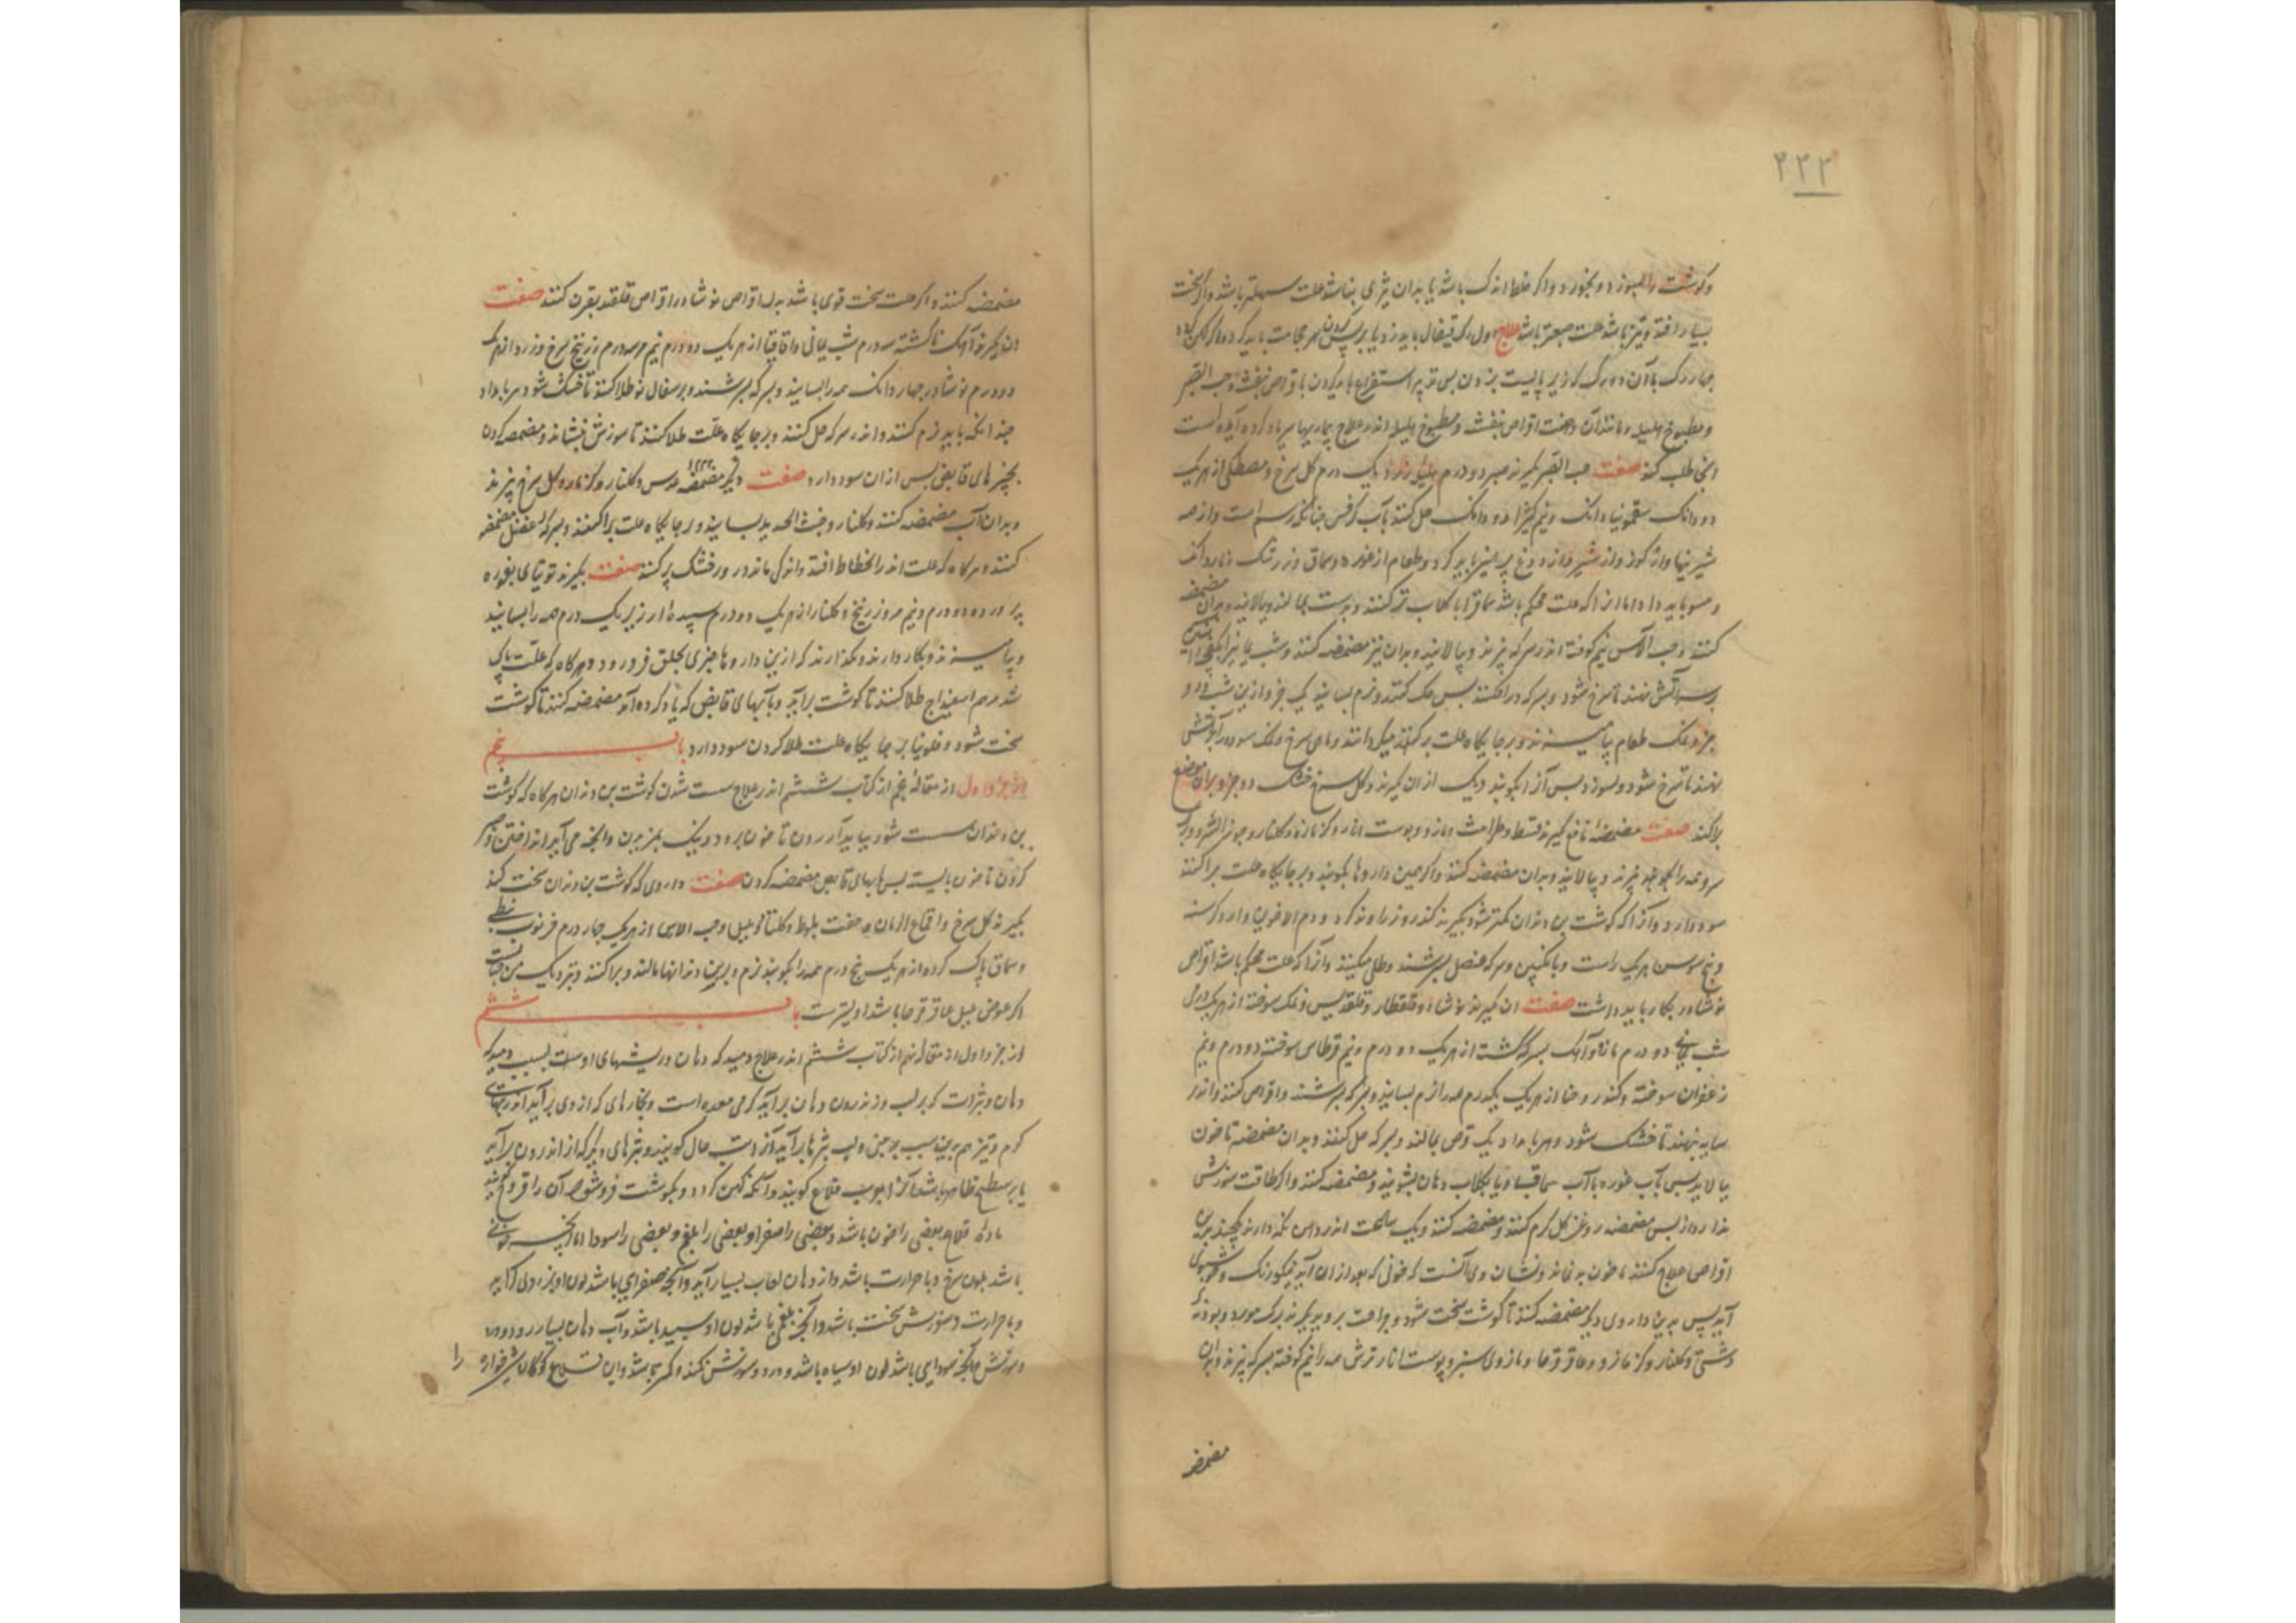 ۲۲۲
وگوشت را بسوزد و بخورد و اگر خلط اندک باشد یا بدان تیزی نباشد علت سهلتر باشد و اگر سخت
بسیار افتد و تیز باشد علت صعبتر باشد علاج اول رک قیفال باید زد یا بر پس کردن حجامت باید کرد و اگر
چهار رگ با آن دو رگ که زیر است بزدن پس تدبیر استفراغ باید کردن با قراص بنفشه و حب الصبر
و مطبوخ هلیله و مانند آن و صفت اقراص بنفشه و مطبوخ هلیله اندر علاج بیماریها سر یاد کرده آمده است
آنجا طلب کنند صفت حب الصبر بگیرند صبر دو درم هلیله زرد یک درم گل سرخ و مصطکی از هر یک
دو دانک سقمونیا دانک و نیم کتیرا دو دانک حل کنند بآب کرفس چنانکه رسم است و از همه
شیرینیها و از گوز و از شیر و از دوغ پرهیز باید کرد و طعام از غوره و سماق و زرشک و ناردانک
باید داد اما آنرا که علت محکم باشد سماق را با گلاب تر کنند و بدست بمالند و بپالایند و بدان مضمضه
کنند و حب الآس نیم کوفته اندر سرکه بپزند و بپالایند و بدان نیز مضمضه کنند و شب یمانی را
بر سر آتش نهند تا سرخ شود و بسرکه در افکنند پس خشک کنند و نرم بسایند یک جزو ازین شب و دو
جزو نمک طعام بیامیزند و بر جایگاه علت بر کنند
نهند تا سرخ شود و بسوزد پس آنرا بکوبند و یک از ان بگیرند و گل سرخ خشک دو جزو و بران موضع
پراکنند صفت مضمضهٔ نافع بگیرند قسط و طراثیث و مازو و پوست انار و گزمازه و گلنار و جوز السرو و برگ
سرو همه را بکوبند و بپزند و بپالایند و بدان مضمضه کنند و اگر همین داروها بکوبند و بر جایگاه علت پراکنند
سود دارد و آنرا که گوشت بن دندان کمتر شود بگیرند کندر و زراوند گرد و دم الاخوین و آرد کرسنه
و بیخ سوسن هر یک راست و بانگبین و سرکه عنصل بسرشند و طلی میکنند و آنرا که علت محکم باشد اقراص
نوشادر بکار باید داشت صفت آن بگیرند نوشادر و قلقطار و قلقدیس و نمک سوخته از هر یک درمی
شب یمانی دو درم مازو و آهک بسرکه کشته از هر یک دو درم و نیم قرطاس سوخته دو درم و نیم
زعفران سوخته و کندر و حنا از هر یک یکدرم همه را نرم بسایند و بسرکه بسرشند و اقراص کنند و اندر
سایه بنهند تا خشک شود و هر بامداد یک قرص بمالند و بسرکه حل کنند و بدان مضمضه تا خون
بپالاید پس بآب غوره یا آب سماق یا بگلاب دهان بشویند و مضمضه کنند و اگر طاقت سوزش
ندارد از پس مضمضه روغن گل گرم کنند و مضمضه کنند و یک ساعت اندر دهن نگه دارند و چند بدین
اقراص علاج کنند تا خون بد نماند و نشان وی آنست که خونی که بعد از ان آید نیکو رنگ و خوشبوی
آید پس بدین داروی دیگر مضمضه کنند تا گوشت سخت شود و جراحت بروید بگیرند برگ مورد و پودنه
دشتی و گلنار و گزمازو و عاقرقرحا و مازوی سبز و پوست انار ترش همه را نیم کوفته بسرکه بپزند و بدان
مضمضه
مضمضه کنند و اگر علت سخت قوی باشد بدل اقراص نوشادر اقراص قلقند بقرن کنند صفت
آن بگیرند آهک ناکشته سه درم شب یمانی و اقاقیا از هر یک دو درم نیم مر سه درم زرنیخ سرخ و زرد از هر یک
دو درم نوشادر چهار دانک همه را بسایند و بسرکه بسرشند و بر سفال نو طلا کنند تا خشک شود هر بامداد
چندانکه باید نرم کنند و اندر سرکه حل کنند و بر جایگاه علت طلا کنند تا سوزش بنشاند و مضمضه کردن
بچیزهای قابض پس از ان سود دارد صفت دیگر مضمضه عدس و گلنار و گزمازه و گل سرخ بپزند
و بدان آب مضمضه کنند و گلنار و خبث الحدید بسایند و بر جایگاه علت پراکنند و بسرکه عنصل مضمضه
کنند و هر گاه که علت اندر انحطاط افتد و اندکی ماند درور خشک بر کنند صفت بگیرند توتیای بغوره
پرورده ده درم و نیم مر و زرنیخ و گلنار از هر یک دو درم سپیده ارزیز یک درم همه را بسایند
و بیامیزند و بکار دارند و نگذارند که ازین داروها چیزی بحلق فرو رود و هر گاه که علت پاک
شد مرهم اسفیداج طلا کنند تا گوشت برآید و بآبهای قابض که یاد کرده آمد مضمضه کنند تا گوشت
سخت شود و فلونیا بر جایگاه علت طلا کردن سود دارد باب پنجم
از جزو اول از مقالهٔ پنجم از کتاب ششم اندر علاج سست شدن گوشت بن دندان هر گاه که گوشت
بن دندان سست شود بباید آزردن تا خون برود و نیک بمزیدن و آنچه می آید انداختن و صبر
کردن تا خون باایستد پس بآبهای قابض مضمضه کردن صفت داروی که گوشت بن دندان سخت کند
بگیرند گل سرخ و اقماع الرمان و جفت بلوط و گلنار و حب الاس از هر یک چهار درم خرنوب نبطی
و سماق پاک کرده از هر یک پنج درم همه را بکوبند نرم و برین دندانها مالند و پراکنند و نزدیک من چنانست
اگر عوض عاقرقرحا باشد اولیتر است باب ششم
از جزو اول از مقاله پنجم از کتاب ششم اندر علاج دمیدگی دهان و ریشهای او سبب دمیدگی
دهان و بثرات که بر لب و اندرون دهان برآید گرمی معده است و بخارهای که از وی برآید
گرم و تیز هم بدین سبب بر بینی و لب بثرها برآید
یا بر سطح ظاهر باشد آنرا قلاع گویند و آنکه کهن گردد و بگوشت فرو شود آن را قروح گویند
ماده قلاع بعضی را خون باشد و بعضی را صفرا و بعضی را بلغم و بعضی را سودا اما آنچه خونی
باشد بلون سرخ و با حرارت باشد و از دهان لعاب بسیار آید و آنچه صفرایی باشد لون او بزردی گراید
و با حرارت و سوزش سخت باشد و آنچه بلغمی باشد لون او سپید باشد و آب دهان بسیار رود و درد
و سوزش و آنچه سودایی باشد لون او سیاه باشد و درد و سوزش کند و کمتر باشد و این قلاع کودکان شیرخواره را